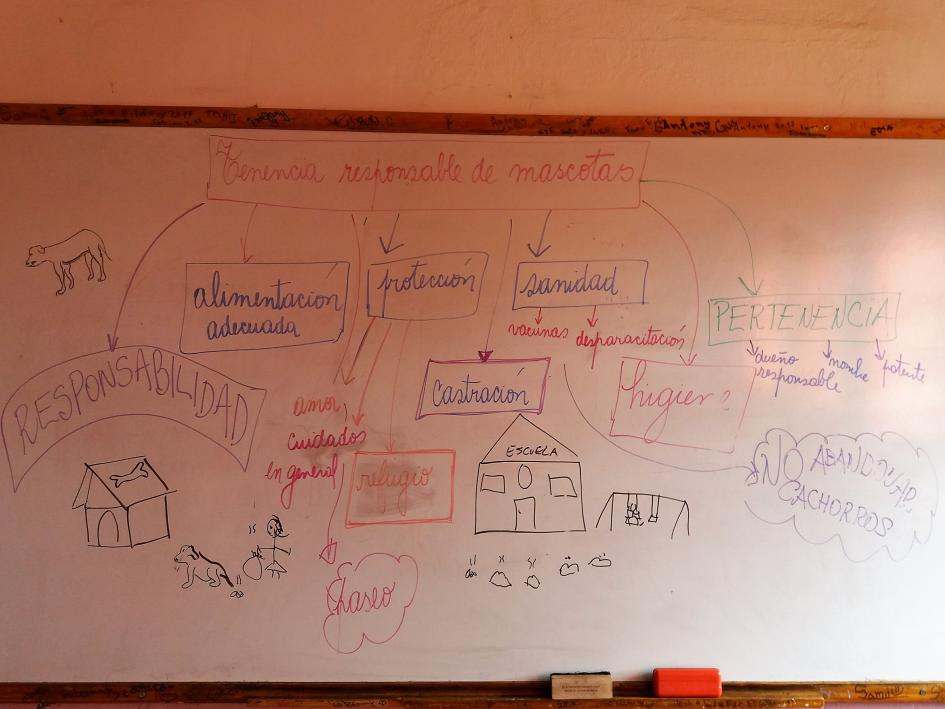 Tenencia responsable de mascotas
alimentación
adecuada
protección
sanidad
vacunas
desparacitación
PERTENENCIA
dueño
responsable
nombre
patente
RESPONSABILIDAD
Castración
higiene
amor
cuidados
en general
refugio
ESCUELA
NO ABANDONAR
CACHORROS
Paseo
Antony
Antony
Samuel